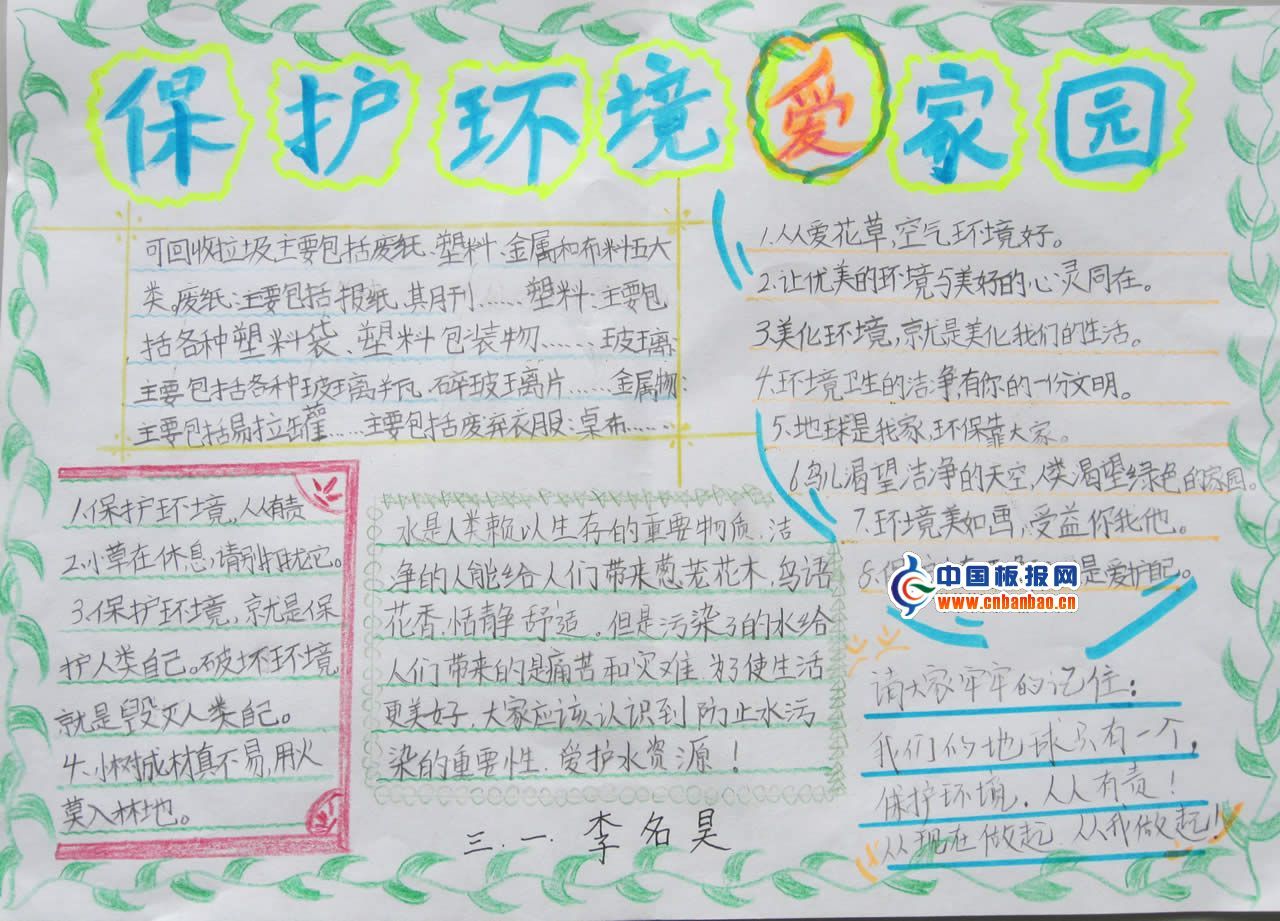 保护环境爱家园
可回收拉圾主要包括废纸、塑料、金属和布料五大
类。废纸:主要包括报纸、其月刊……塑料:主要包
括各种塑料袋、塑料包装物……玻璃:
主要包括各种玻璃瓶、碎玻璃片……金属物:
主要包括易拉罐……主要包括废弃衣服:桌布……
1.保护环境,人人有责
2.小草在休息,请别打扰它。
3.保护环境,就是保
护人类自己。破坏环境
就是毁灭人类自己。
4.小树成材真不易,用火
莫入林地。
水是人类赖以生存的重要物质,洁
净的人能给人们带来葱茏花木,鸟语
花香,恬静舒适。但是污染了的水给
人们带来的是痛苦和灾难 为了使生活
更美好,大家应该认识到防止水污
染的重要性,爱护水资源!
1.人人爱花草,空气环境好。
2.让优美的环境与美好的心灵同在。
3.美化环境,就是美化我们的生活。
4.环境卫生的洁净,有你的一份文明。
5.地球是我家,环保靠大家。
6.鸟儿渴望洁净的天空,人类渴望绿色的家园。
7.环境美如画,受益你我他。
8.保 是爱护自己。
中国板报网
www.cnbanbao.cn
请大家牢牢的记住:
我们的地球只有一个,
保护环境,人人有责!
从现在做起 从我做起!
三.一.李名昊